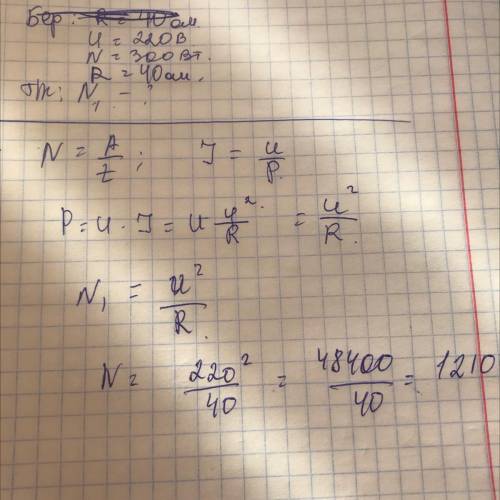 Бер: R = 40 ом.
U = 220В
N = 300 Вт.
R = 40ом.
Тк: N₁ - ?
N = A/t ; J = u/P.
P = U · J = U u²/R = u²/R.
N₁ = u²/R.
N = 220²/40 = 48400/40 = 1210